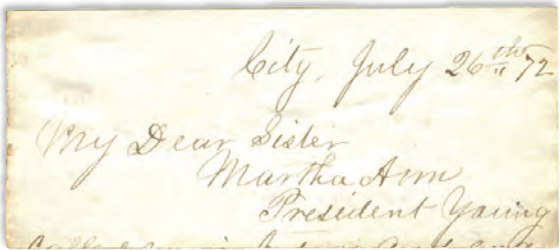 City, July 26th "72
My Dear Sister
Martha Ann
President Young